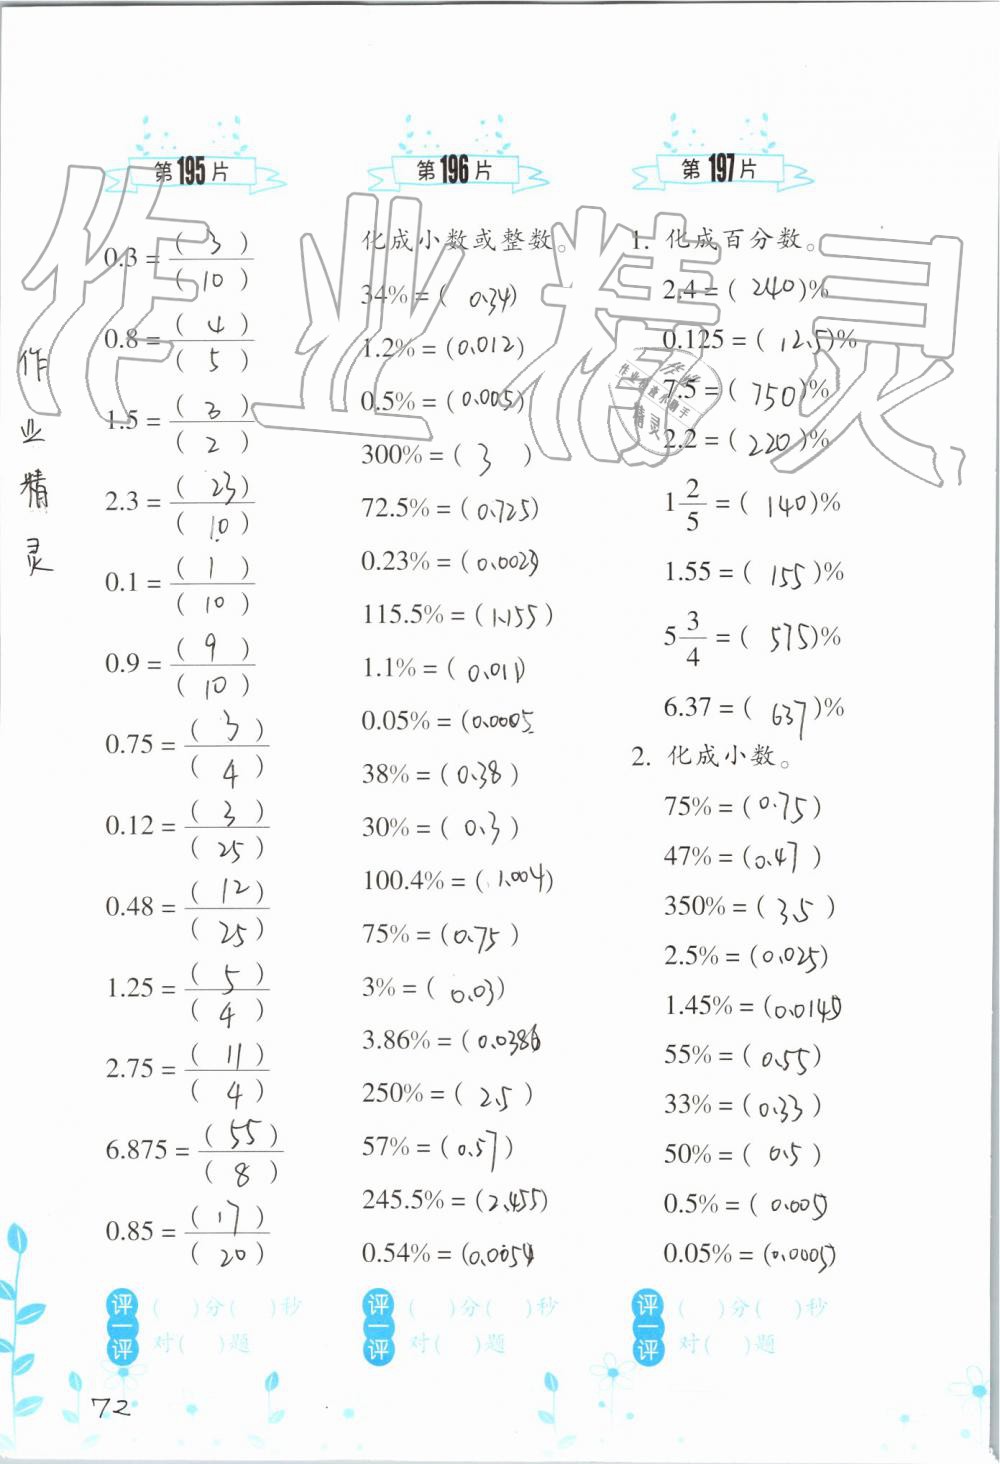 第195片
0.3 = (3)/(10)
0.8 = (4)/(5)
1.5 = (3)/(2)
2.3 = (23)/(10)
0.1 = (1)/(10)
0.9 = (9)/(10)
0.75 = (3)/(4)
0.12 = (3)/(25)
0.48 = (12)/(25)
1.25 = (5)/(4)
2.75 = (11)/(4)
6.875 = (55)/(8)
0.85 = (17)/(20)
评一评 ( )分( )秒
对( )题
第196片
化成小数或整数。
34% = (0.34)
1.2% = (0.012)
0.5% = (0.005)
300% = (3)
72.5% = (0.725)
0.23% = (0.0023)
115.5% = (1.155)
1.1% = (0.011)
0.05% = (0.0005
38% = (0.38)
30% = (0.3)
100.4% = (1.004)
75% = (0.75)
3% = (0.03)
3.86% = (0.0386
250% = (2.5)
57% = (0.57)
245.5% = (2.455)
0.54% = (0.0054
评一评 ( )分( )秒
对( )题
第197片
1. 化成百分数。
2.4 = (240)%
0.125 = (12.5)%
7.5 = (750)%
2.2 = (220)%
1 2/5 = (140)%
1.55 = (155)%
5 3/4 = (575)%
6.37 = (637)%
2. 化成小数。
75% = (0.75)
47% = (0.47)
350% = (3.5)
2.5% = (0.025)
1.45% = (0.0145)
55% = (0.55)
33% = (0.33)
50% = (0.5)
0.5% = (0.005)
0.05% = (0.0005)
评一评 ( )分( )秒
对( )题
作业精灵
作业精灵
72